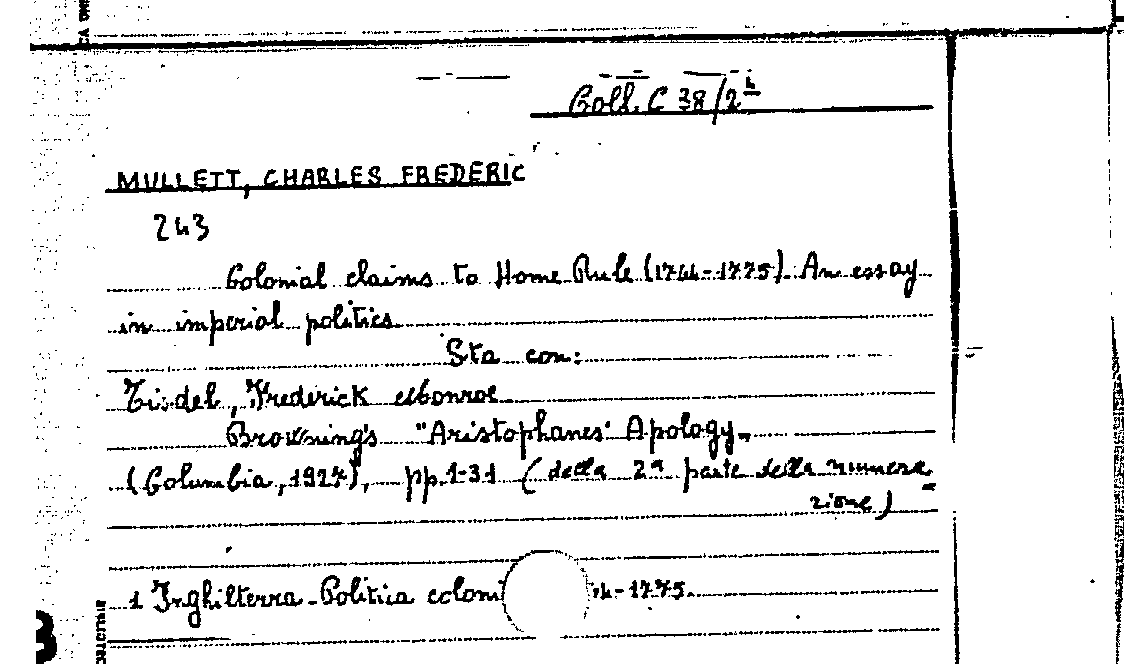 Coll. C 38/2
MULLETT, CHARLES FREDERIC
243
Colonial claims to Home Rule (1764-1775). An essay
in imperial politics.
Sta con:
Tisdel, Frederick Monroe
Browning's "Aristophanes' Apology"
(Columbia, 1927), pp. 1-31 (della 2ª parte della numera=
zione)
1 Inghilterra - Politica coloni 4-1775.